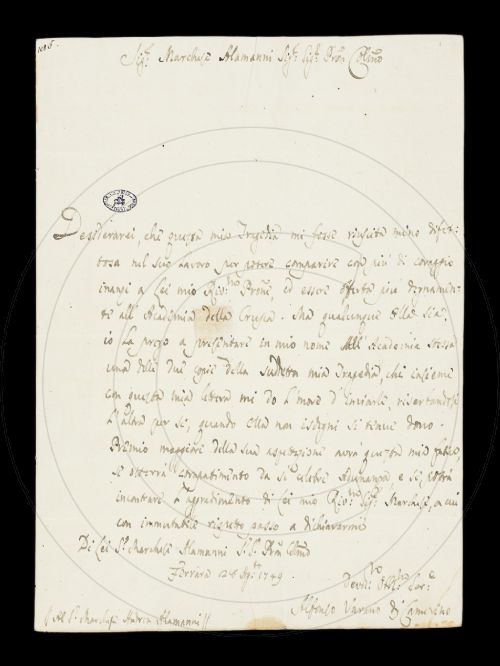 Sig.r Marchese Alamanni Sig.r Sig.r Pron Colmo
Desidererei, che questa mia Tragedia mi fosse riuscita meno difet-
tosa nel suo lavoro per potere comparire con più di coraggio
inanzi a Lei mio Riv.mo Prone, ed essere offerta più degnamen-
te all' Accademia della Crusca. Ma qualunque Ella sia,
io La prego a presentare in mio nome all' Accademia stessa
una delle due copie della suddetta mia Tragedia, che insieme
con questa mia lettera mi do l'onore d'inviarle, riserbandosi
l'altra per Se, quando Ella non isdegni sì tenue dono.
Premio maggiore della sua aspettazione avrà questa mia fatica,
se otterrà compatimento da sì celebre Adunanza e se potrà
incontrare l'aggradimento di Lei mio Riv.mo Sig.r Marchese, a cui
con immutabile rispetto passo a dichiararmi
Di Lei S.r Marchese Alamanni S.r Pron Colmo
Ferrara 24 1749.
Devot.mo Obb.mo Ser.e
Alfonso Varano di Camerino
Al S.r Marchese Andrea Alamanni